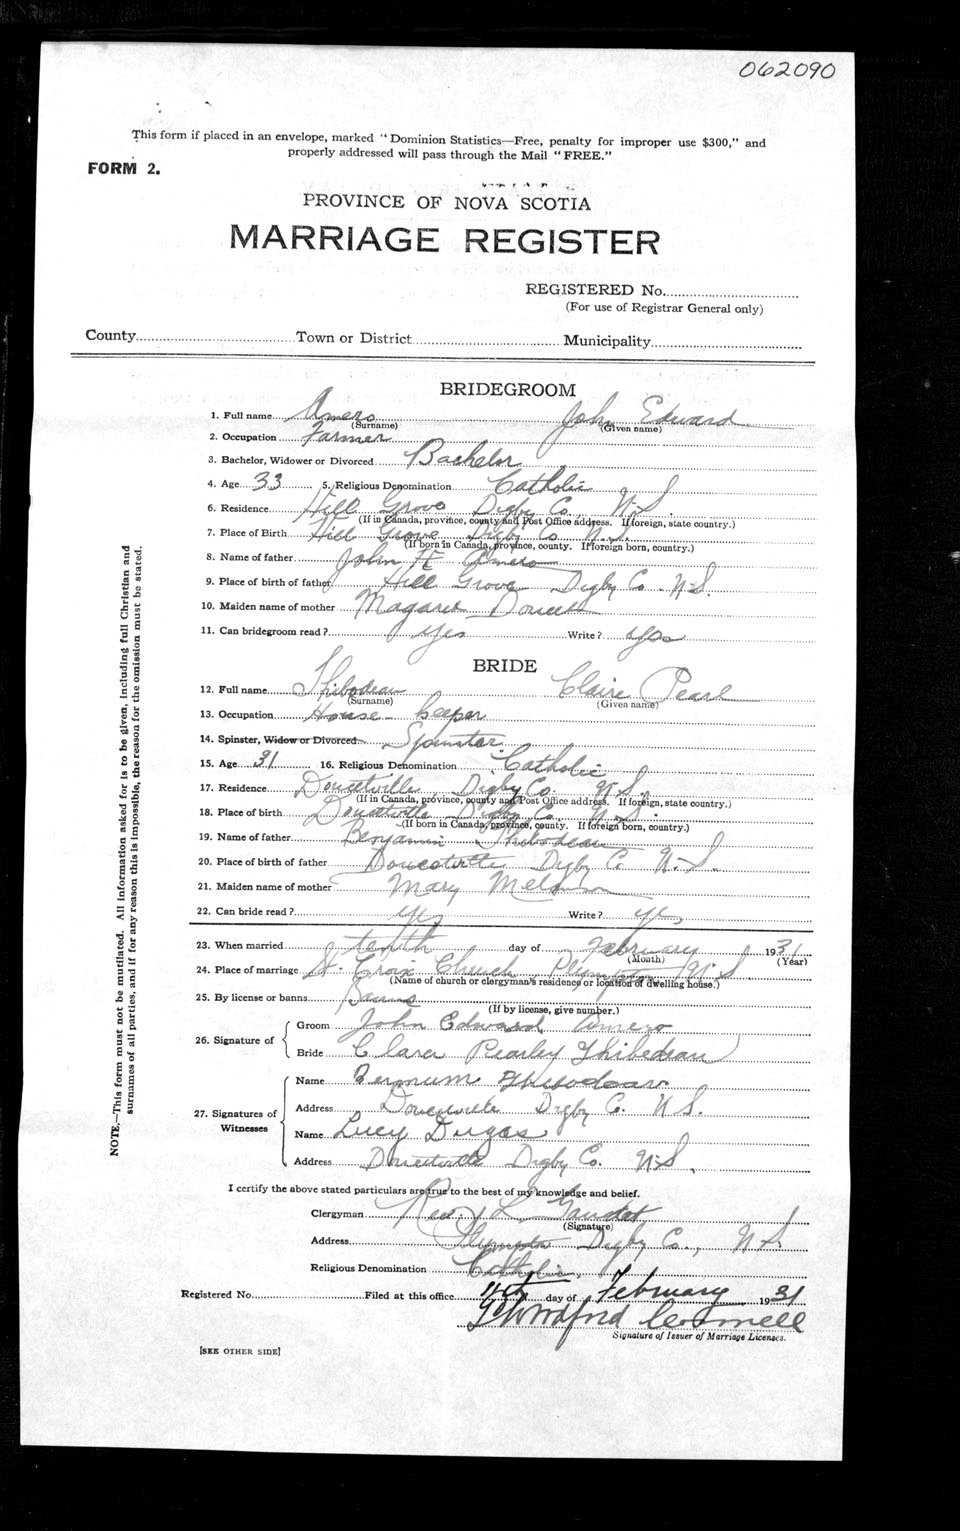 062090
This form if placed in an envelope, marked "Dominion Statistics—Free, penalty for improper use $300," and
properly addressed will pass through the Mail "FREE."
FORM 2.
PROVINCE OF NOVA SCOTIA
MARRIAGE REGISTER
REGISTERED No.
(For use of Registrar General only)
County Town or District Municipality
BRIDEGROOM
1. Full name Amero John Edward
(Surname) (Given name)
2. Occupation Farmer
3. Bachelor, Widower or Divorced Bachelor
4. Age 33 5. Religious Denomination Catholic
6. Residence Hill Grove Digby Co. N.S.
(If in Canada, province, county and Post Office address. If foreign, state country.)
7. Place of Birth Hill Grove Digby Co N.S.
(If born in Canada, province, county. If foreign born, country.)
8. Name of father John H Amero
9. Place of birth of father Hill Grove Digby Co. N.S.
10. Maiden name of mother Magaret Doucett
11. Can bridegroom read? yes Write? yes
BRIDE
12. Full name Thibodeau Claire Pearl
(Surname) (Given name)
13. Occupation House keeper
14. Spinster, Widow or Divorced Spinster
15. Age 31 16. Religious Denomination Catholic
17. Residence Doucetville Digby Co. N.S.
(If in Canada, province, county and Post Office address. If foreign, state country.)
18. Place of birth Doucetville Digby Co. N.S.
(If born in Canada, province, county. If foreign born, country.)
19. Name of father Benjamin Thibodeau
20. Place of birth of father Doucetville Digby Co N.S.
21. Maiden name of mother Mary
22. Can bride read? yes Write? yes
23. When married tenth day of February 1931
(Month) (Year)
24. Place of marriage St. Croix Church Plympton N.S
(Name of church or clergyman's residence or location of dwelling house.)
25. By license or banns Banns
(If by license, give number.)
26. Signature of
Groom John Edward Amero
Bride Clare Pearley Thibedeau
27. Signatures of Witnesses
Name Thibodeau
Address Doucetville Digby Co. N.S.
Name Lucy Dugas
Address Doucetville Digby Co. N.S.
I certify the above stated particulars are true to the best of my knowledge and belief.
Clergyman Rev. J. L. Gaudet
(Signature)
Address Plympton Digby Co., N.S.
Religious Denomination Catholic
Registered No. Filed at this office 14th day of February 1931
Signature of Issuer of Marriage Licenses.
[SEE OTHER SIDE]
NOTE.—This form must not be mutilated. All information asked for is to be given, including full Christian and
surnames of all parties, and if for any reason this is impossible, the reason for the omission must be stated.